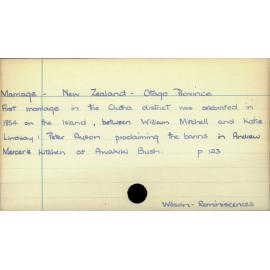 Marriage - New Zealand - Otago Province
First marriage in the Clutha district was celebrated in
1854 on the Island, between William Mitchell and Katie
Lindsay; Peter Ayson proclaiming the banns in Andrew
Mercer's kitchen at Awakiki Bush. p 123
Wilson - Reminiscences